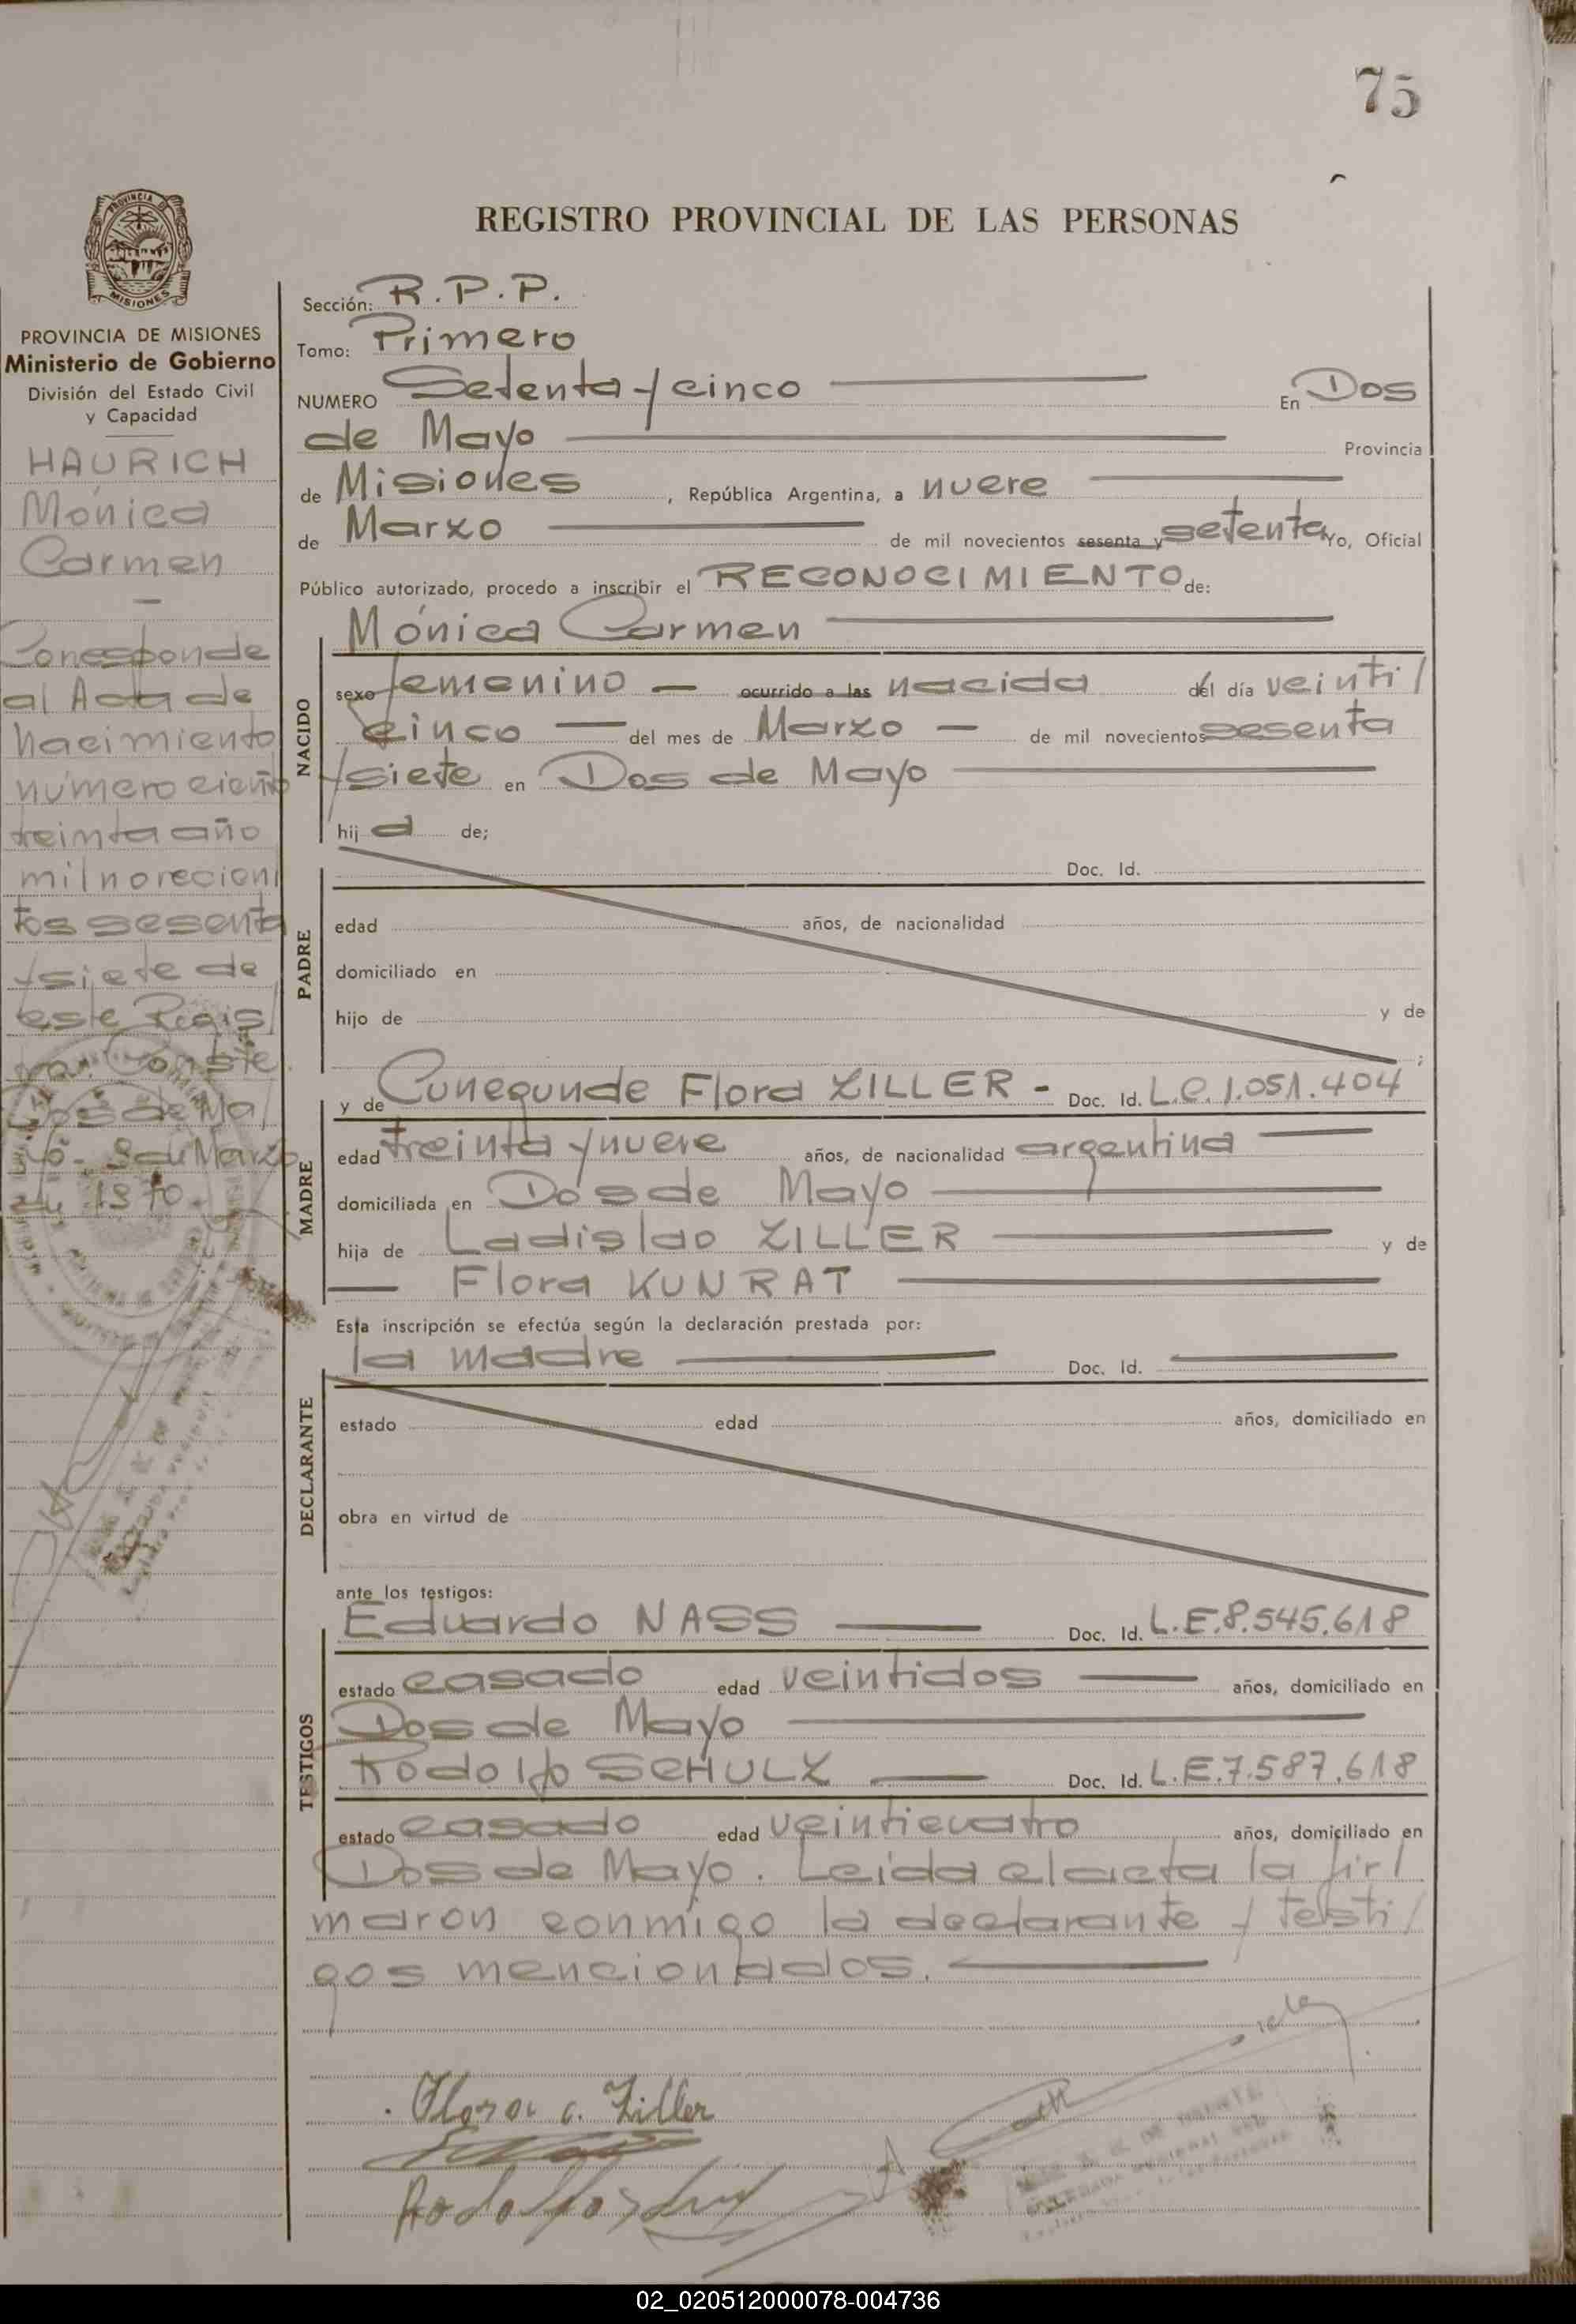 75
REGISTRO PROVINCIAL DE LAS PERSONAS
PROVINCIA
MISIONES
PROVINCIA DE MISIONES
Ministerio de Gobierno
División del Estado Civil
y Capacidad
HAURICH
Mónica
Carmen
—
Corresponde
al Acta de
nacimiento
número ciento
treinta año
mil novecien
tos sesenta
y siete de
este Regis/
tro. Conste.
Dos de Ma/
yo. 9 de Marzo
de 1970.
Sección: R.P.P.
Tomo: Primero
NUMERO Setenta y cinco — En Dos
de Mayo — Provincia
de Misiones, República Argentina, a nueve —
de Marzo — de mil novecientos sesenta y setenta Yo, Oficial
Público autorizado, procedo a inscribir el RECONOCIMIENTO de:
Mónica Carmen —
NACIDO
sexo femenino — ocurrido a las nacida del día veinti/
cinco — del mes de Marzo — de mil novecientos sesenta
y siete en Dos de Mayo —
hij a de;
PADRE
Doc. Id.
edad años, de nacionalidad
domiciliado en
hijo de y de
;
MADRE
y de Cunegunde Flora ZILLER - Doc. Id. L.C. 1.051.404
edad treinta y nueve años, de nacionalidad argentina —
domiciliada en Dos de Mayo —
hija de Ladislao ZILLER — y de
— Flora KUNRAT —
Esta inscripción se efectúa según la declaración prestada por:
la madre — Doc. Id. —
DECLARANTE
estado edad años, domiciliado en
obra en virtud de
ante los testigos:
TESTIGOS
Eduardo NASS — Doc. Id. L.E. 8.545.618
estado casado edad veintidos — años, domiciliado en
Dos de Mayo —
Rodolfo SCHULZ — Doc. Id. L.E. 7.587.618
estado casado edad veinticuatro años, domiciliado en
Dos de Mayo. Leída el acta la fir/
maron conmigo la declarante y testi/
gos mencionados. —
Flora c. Ziller
Rodolfo
02_020512000078-004736